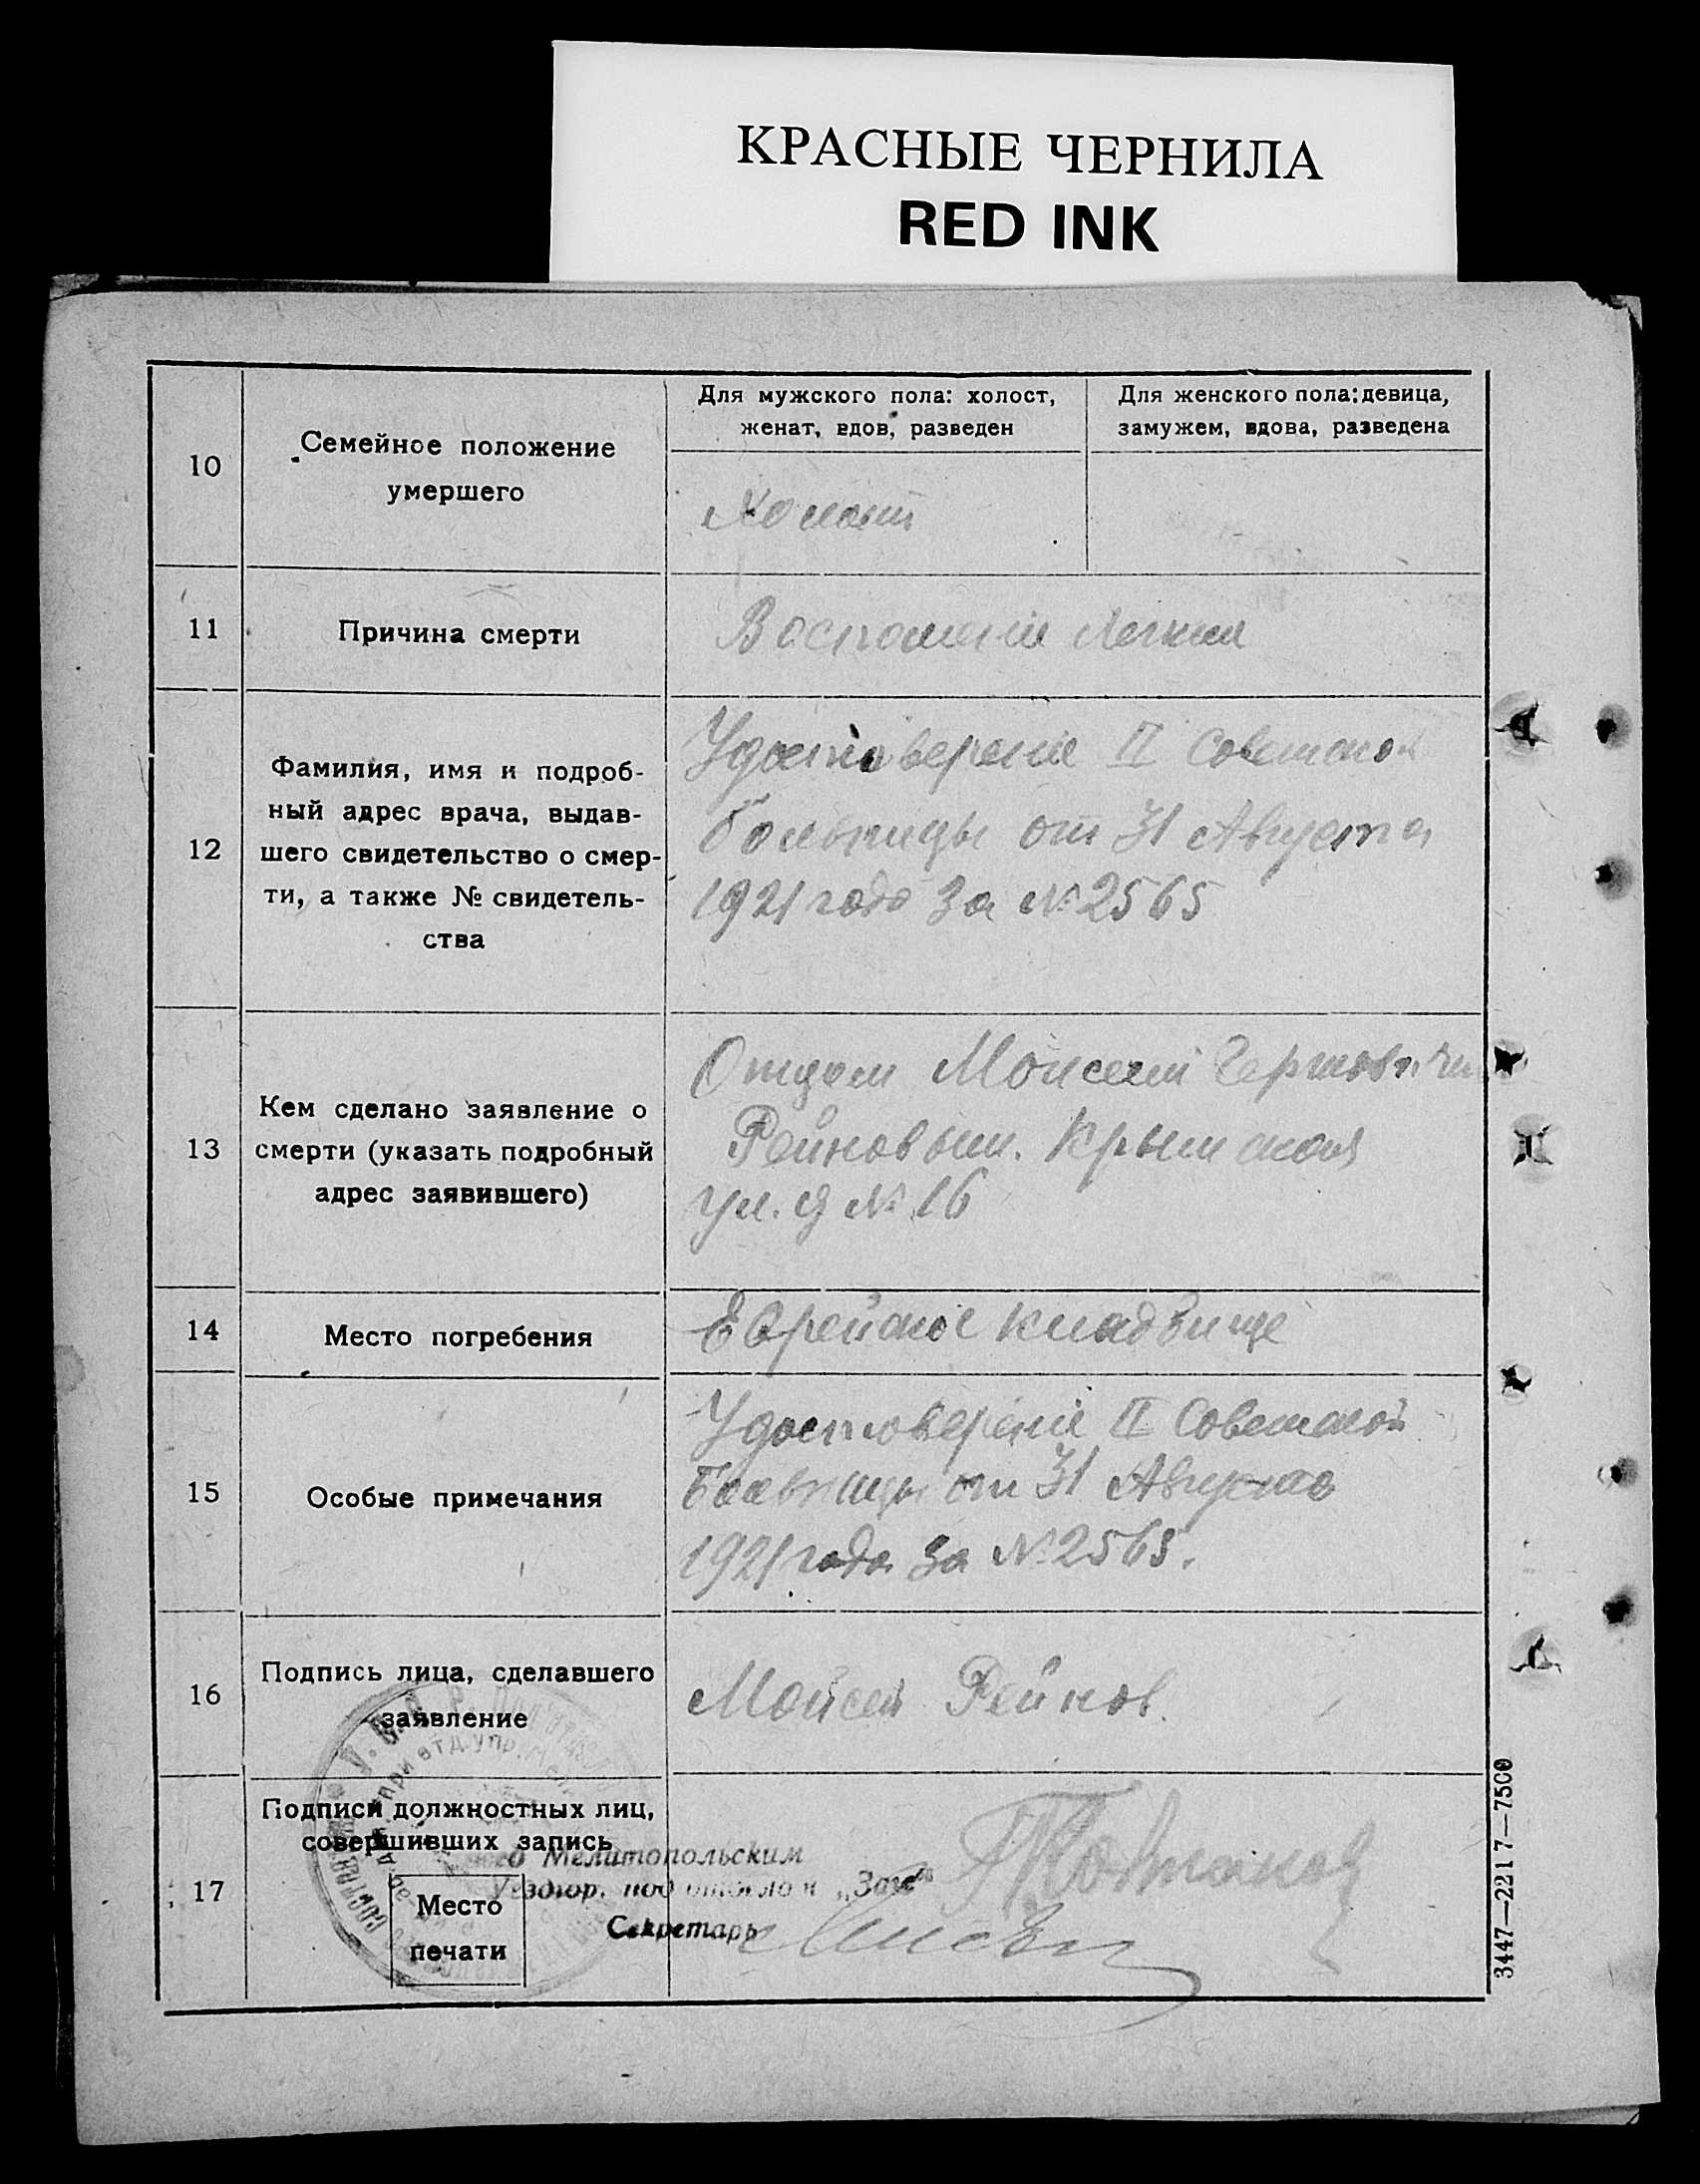 КРАСНЫЕ ЧЕРНИЛА
RED INK
10
Семейное положение
умершего
Для мужского пола: холост,
женат, вдов, разведен
Для женского пола: девица,
замужем, вдова, разведена
Холост
11
Причина смерти
Воспаление легких
12
Фамилия, имя и подроб-
ный адрес врача, выдав-
шего свидетельство о смер-
ти, а также № свидетель-
ства
Удостоверение II Советской
больницы от 31 Августа
1921 года за № 2565
13
Кем сделано заявление о
смерти (указать подробный
адрес заявившего)
Отцом Моисеем
Рейновым. Крымская
ул. д № 16
14
Место погребения
Еврейское кладбище
15
Особые примечания
Удостоверение II Советской
Больницы от 31 Августа
1921 года за № 2565.
16
Подпись лица, сделавшего
заявление
Мойсей Рейнов.
17
Подписи должностных лиц,
совершивших запись
Место
печати
Мелитопольским
Уездгор. подотделом „Загс"
Секретарь
3447—2217—7500